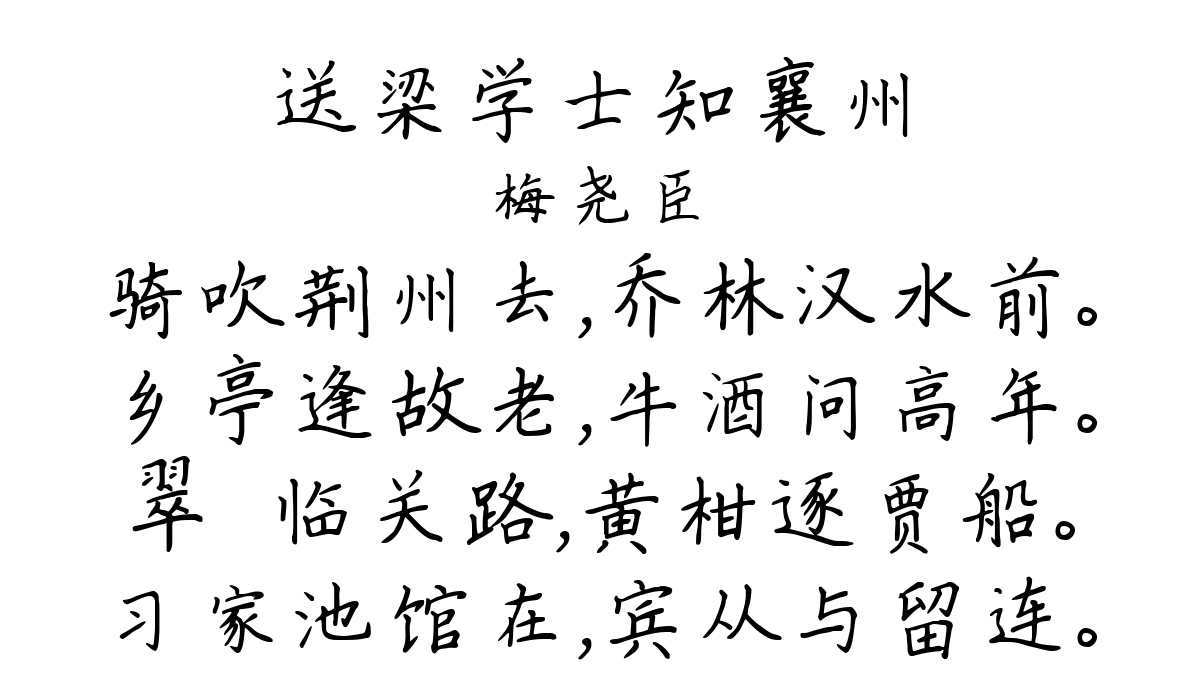 送梁学士知襄州
梅尧臣
骑吹荆州去,乔林汉水前。
乡亭逢故老,牛酒问高年。
翠 临关路,黄柑逐贾船。
习家池馆在,宾从与留连。